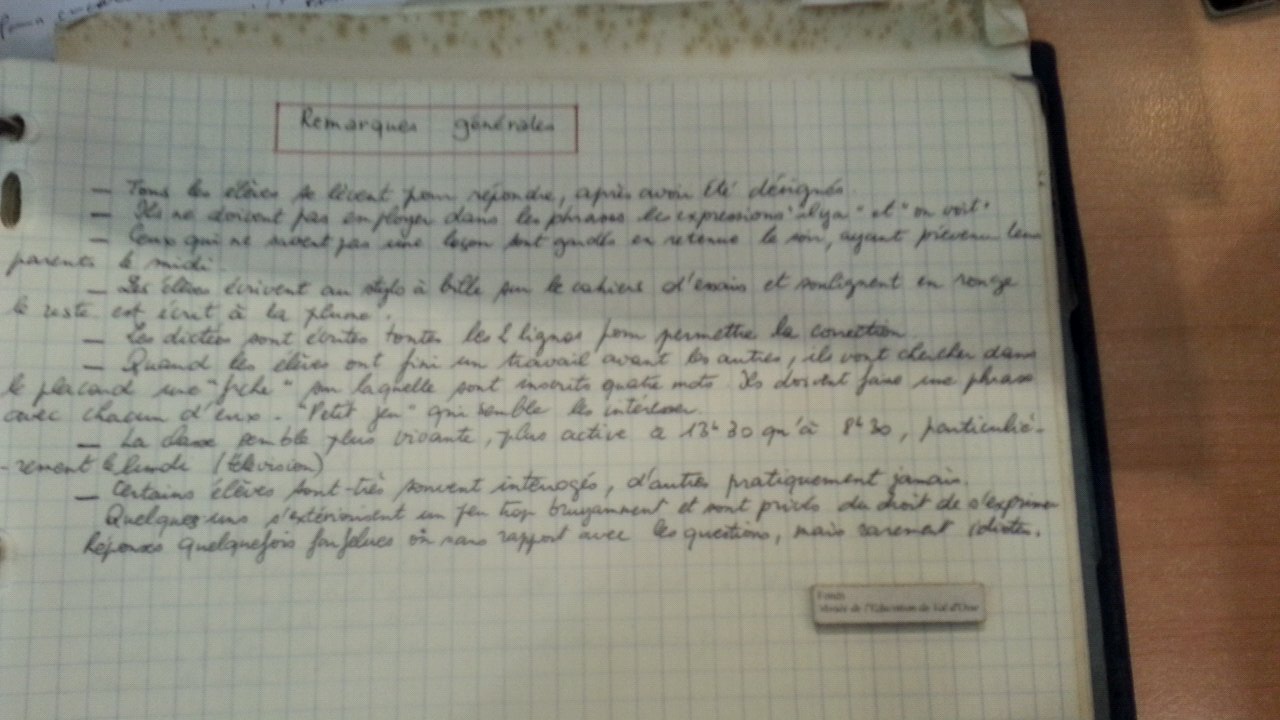 Remarques générales
— Tous les élèves se lèvent pour répondre, après avoir été désignés.
— Ils ne doivent pas employer dans les phrases les expressions "il y a" et "on voit"
— Ceux qui ne savent pas une leçon sont gardés en retenue le soir, ayant prévenu leurs
parents le midi
— Les élèves écrivent au stylo à bille sur le cahiers d'essais et soulignent en rouge
le reste est écrit à la plume.
— Les dictées sont écrites toutes les 2 lignes pour permettre la correction
— Quand les élèves ont fini un travail avant les autres, ils vont chercher dans
le placard une "fiche" sur laquelle sont inscrits quatre mots. Ils doivent faire une phrase
avec chacun d'eux. "Petit jeu" qui semble les intéresser.
— La classe semble plus vivante, plus active à 13h30 qu'à 8h30, particuliè-
-rement le lundi (télévision)
— Certains élèves sont très souvent interrogés, d'autres pratiquement jamais.
Quelques uns s'extériorisent un peu trop bruyamment et sont privés du droit de s'exprimer
Réponses quelquefois farfelues ou sans rapport avec les questions, mais rarement idiotes.
Fonds
Musée de l'Education du Val d'Oise